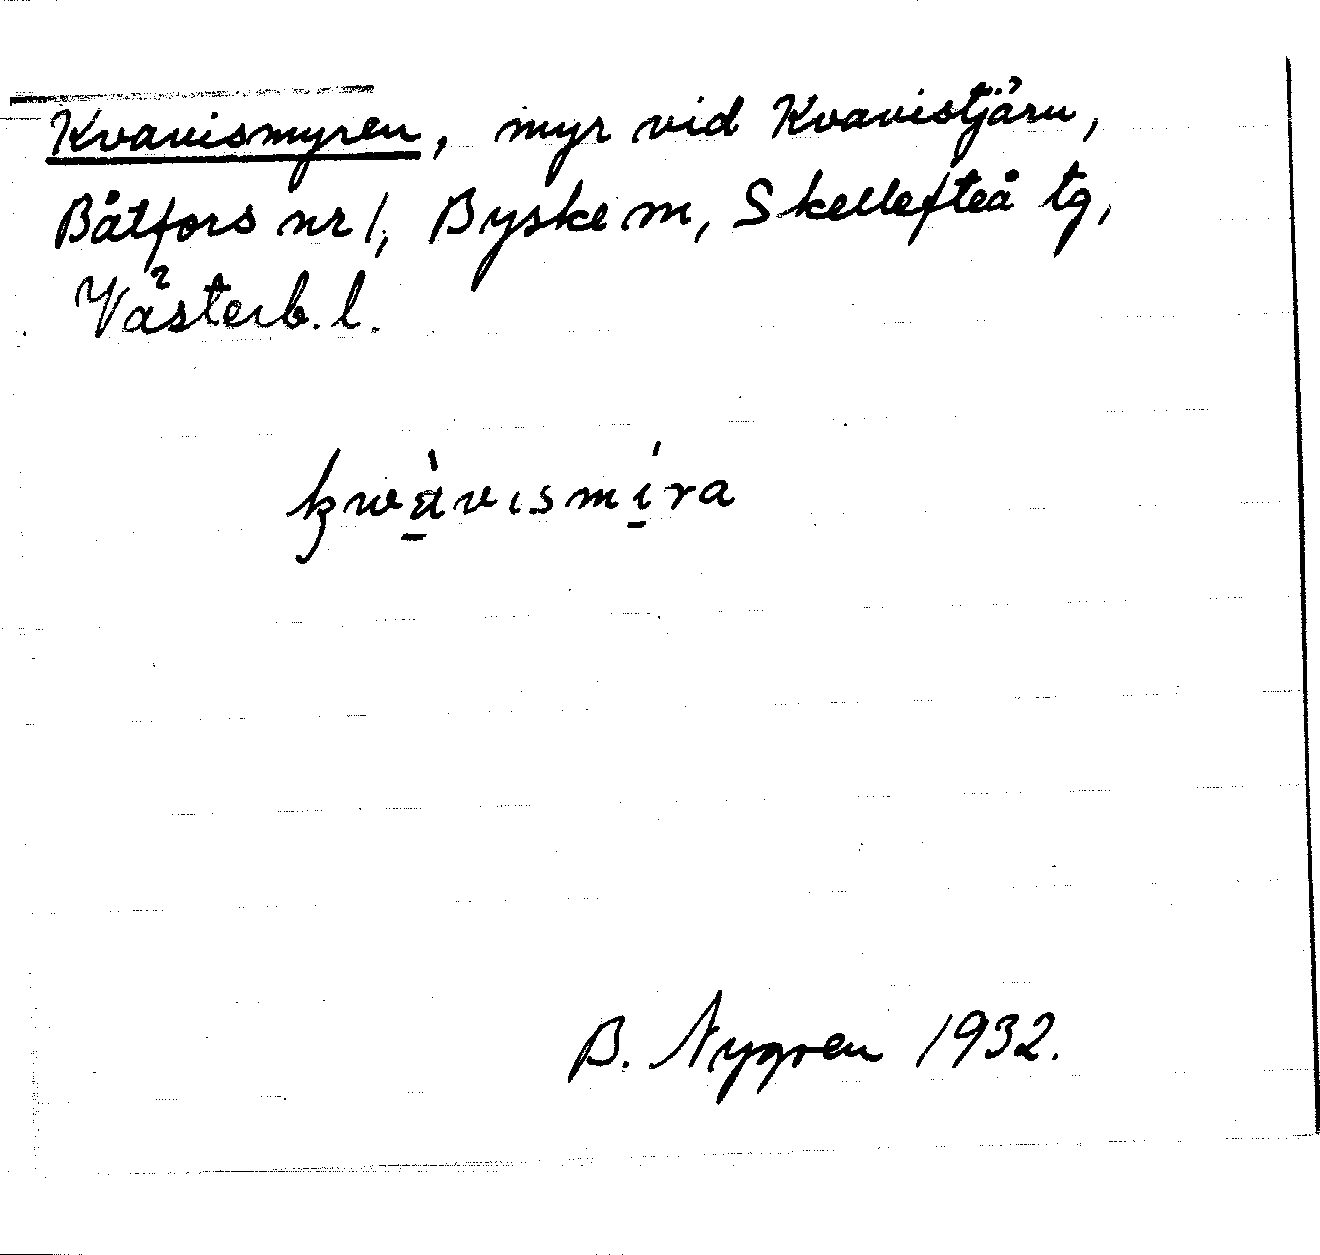 Kvavismyren, myr vid Kvavistjärn,
Båtfors nr 1, Byske sn, Skellefteå tg,
Västerb. l.
kwàvismíra
B. Nygren 1932.